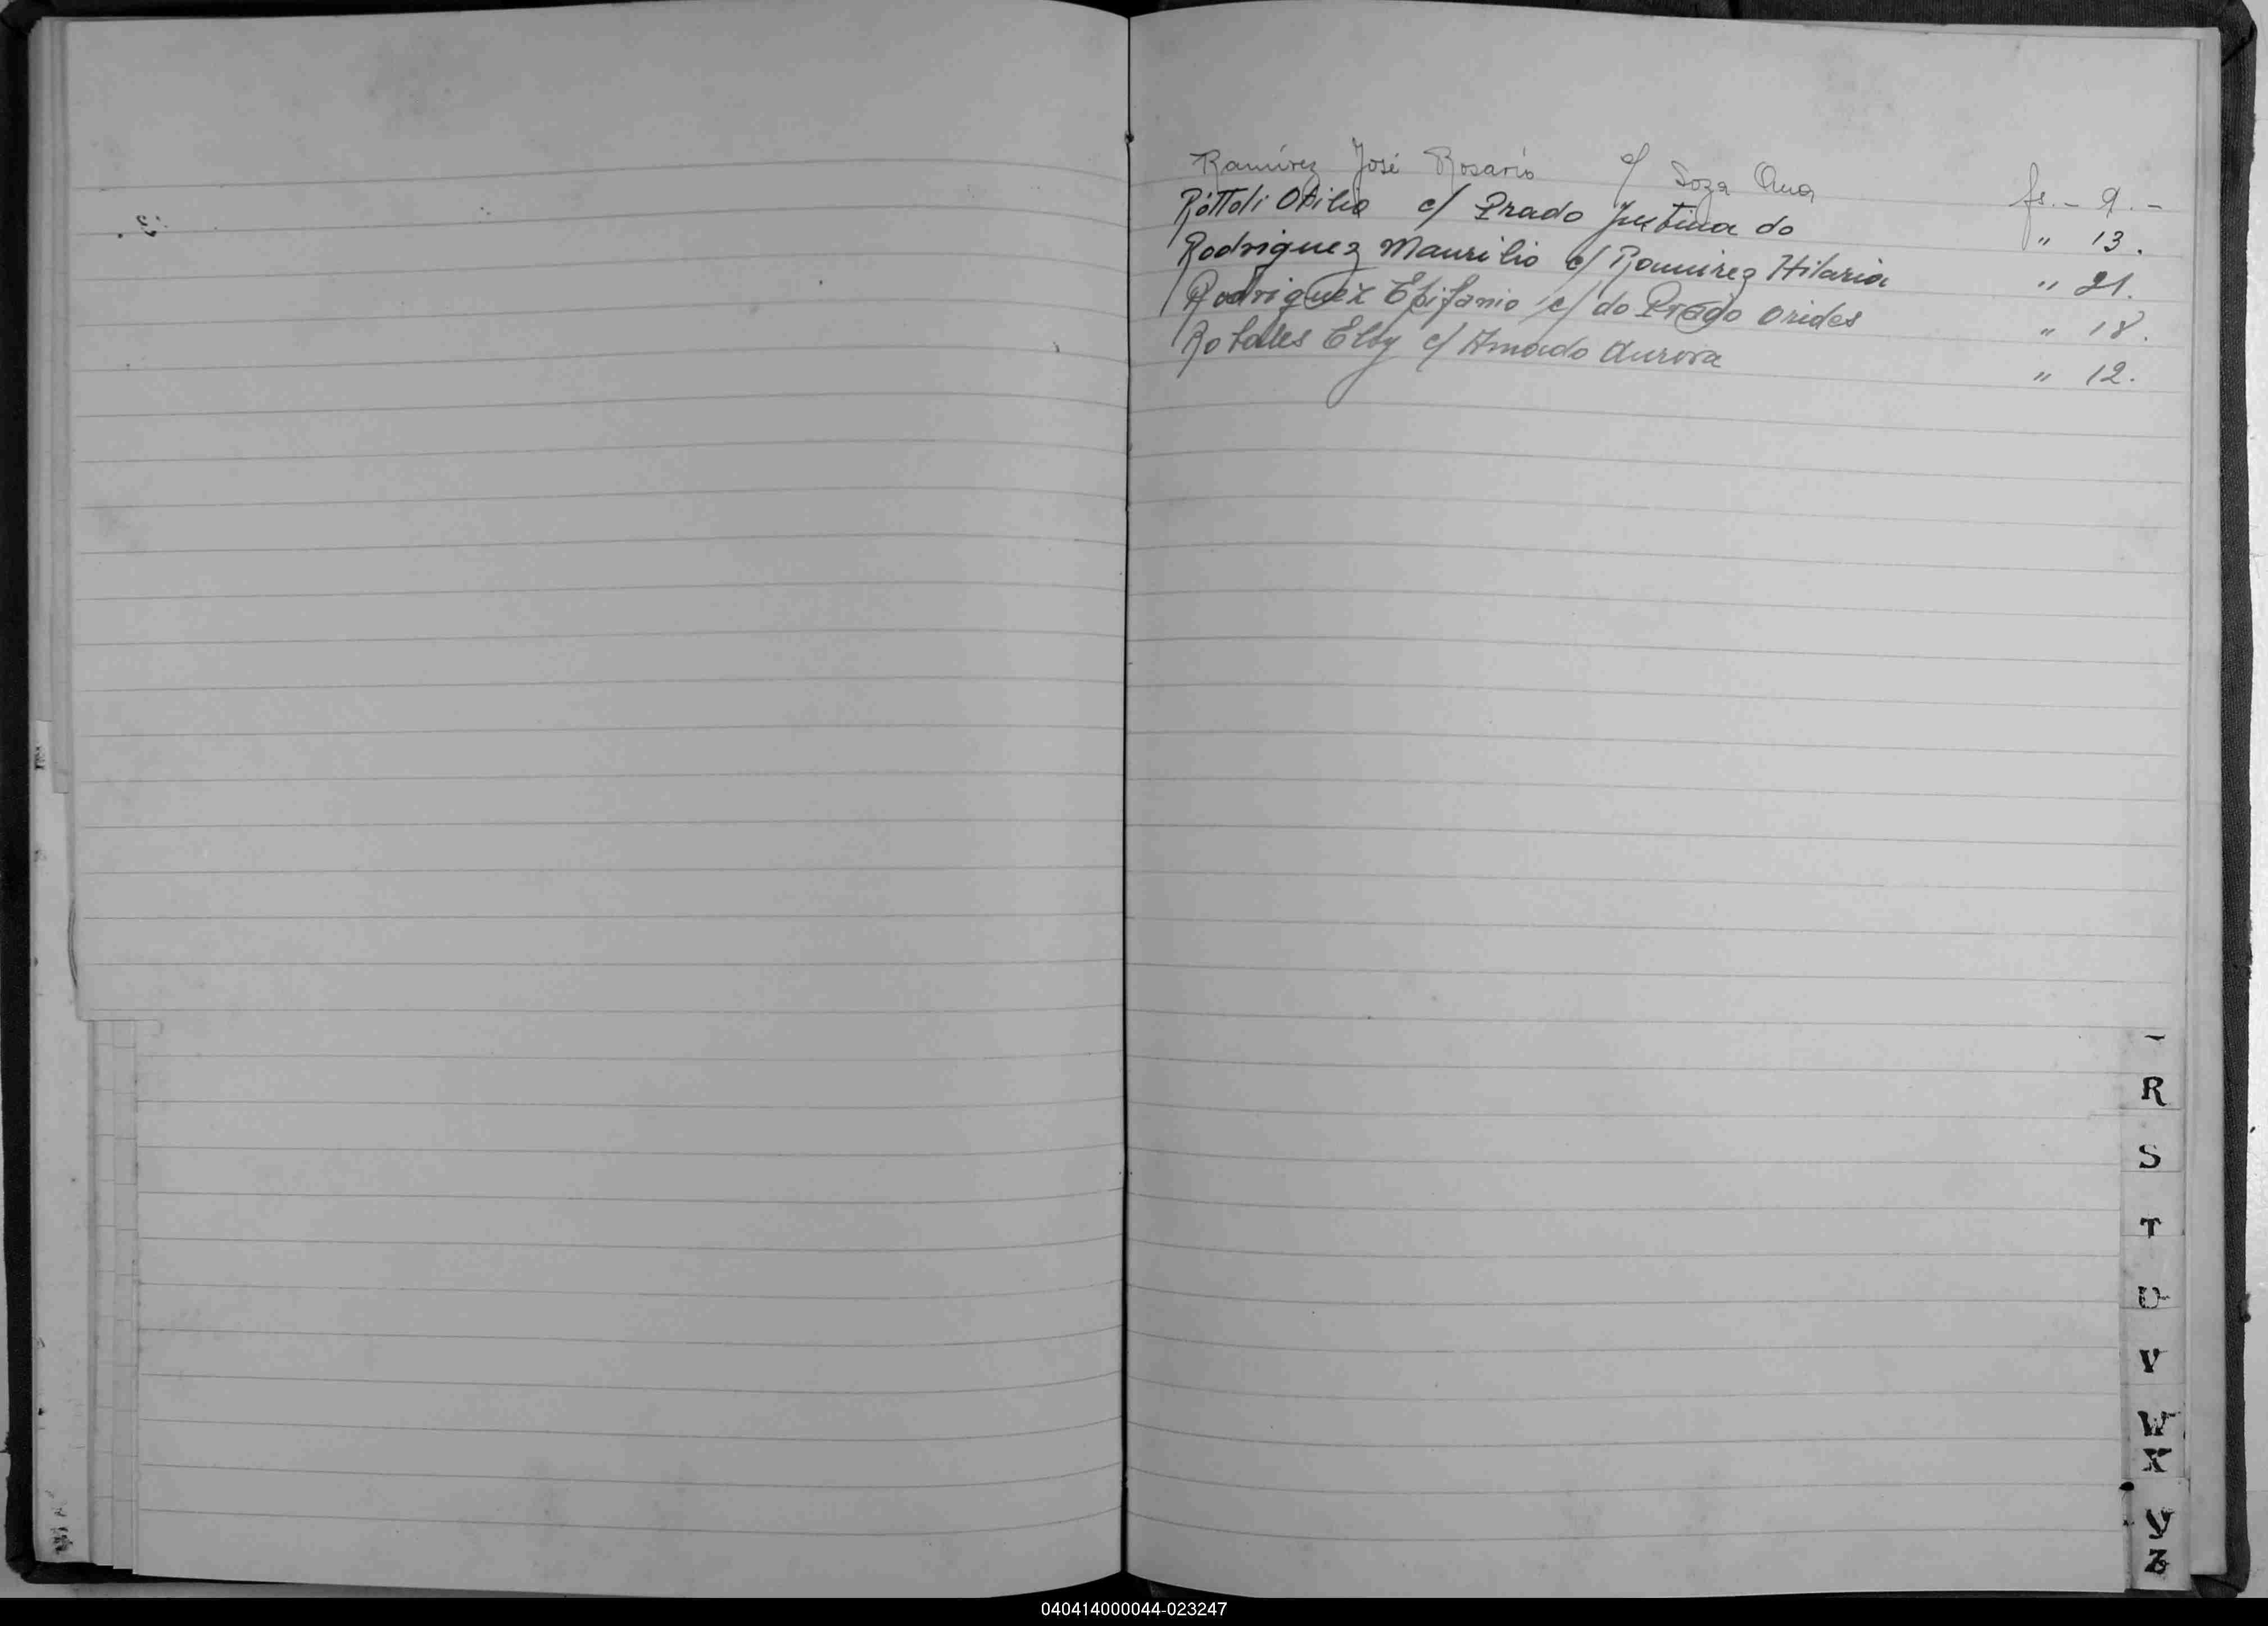 Ramírez José Rosario c/ Soza Ana fs. - 9. -
Róttoli Otilio c/ Prado Justina do " 13.
Rodriguez Maurilio c/ Ramirez Hilaria " 21.
Rodriguez Epifanio c/ do Prado Orides " 18.
c/ Amado Aurora " 12.
R
S
T
U
V
W
X
Y
Z
040414000044-023247